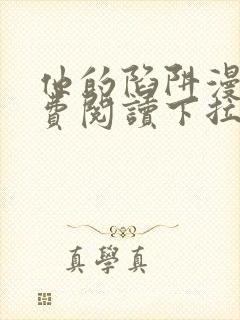 他的陷阱漫
費閱讀下拉
真學真